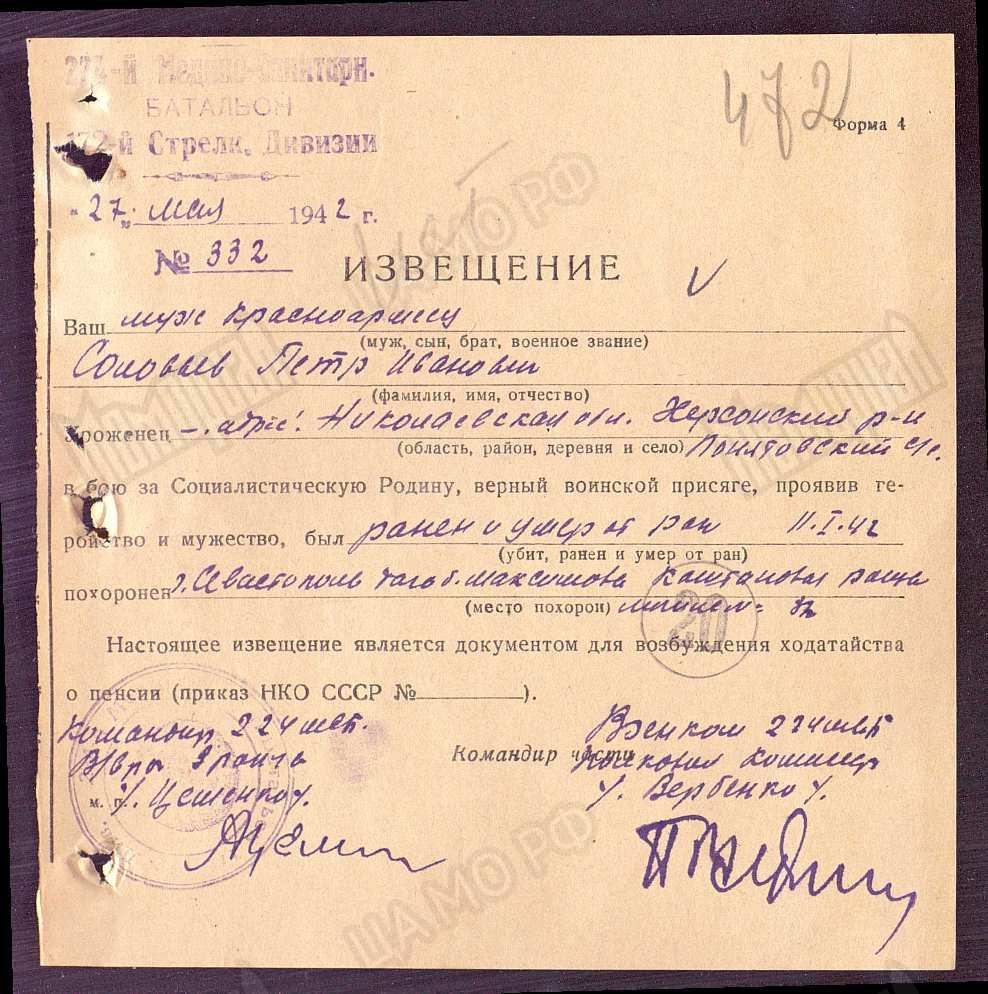 274-й Медико-санитарн.
БАТАЛЬОН
172-й Стрелк. Дивизии
472
Форма 4
"27" мая 1942 г.
№ 332
ИЗВЕЩЕНИЕ
Ваш муж красноармеец
(муж, сын, брат, военное звание)
Соловьев Петр Иванович
(фамилия, имя, отчество)
уроженец - адрес: Николаевская обл. Херсонский р-н
(область, район, деревня и село) Понятовский с/с.
в бою за Социалистическую Родину, верный воинской присяге, проявив ге-
ройство и мужество, был ранен и умер от ран 11.I.42
(убит, ранен и умер от ран)
похоронен г. Севастополь хутор Максимова Каштановая роща
(место похорон)
20
Настоящее извещение является документом для возбуждения ходатайства
о пенсии (приказ НКО СССР № ).
Командир 224 мсб.
В/врач 2 ранга
м. п. /. Цешенко /.
Командир части
Военком 224 мсб
/. Вербенко /.
ЦАМО РФ
ЦАМО РФ